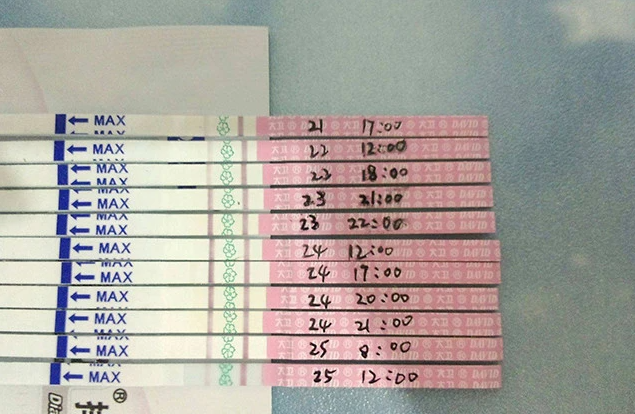 MAX 21 17:00
MAX 22 12:00
MAX 22 18:00
MAX 23 21:00
MAX 23 22:00
MAX 24 12:00
MAX 24 17:00
MAX 24 20:00
MAX 24 21:00
MAX 25 8:00
MAX 25 12:00
大卫 ® DAVID
®